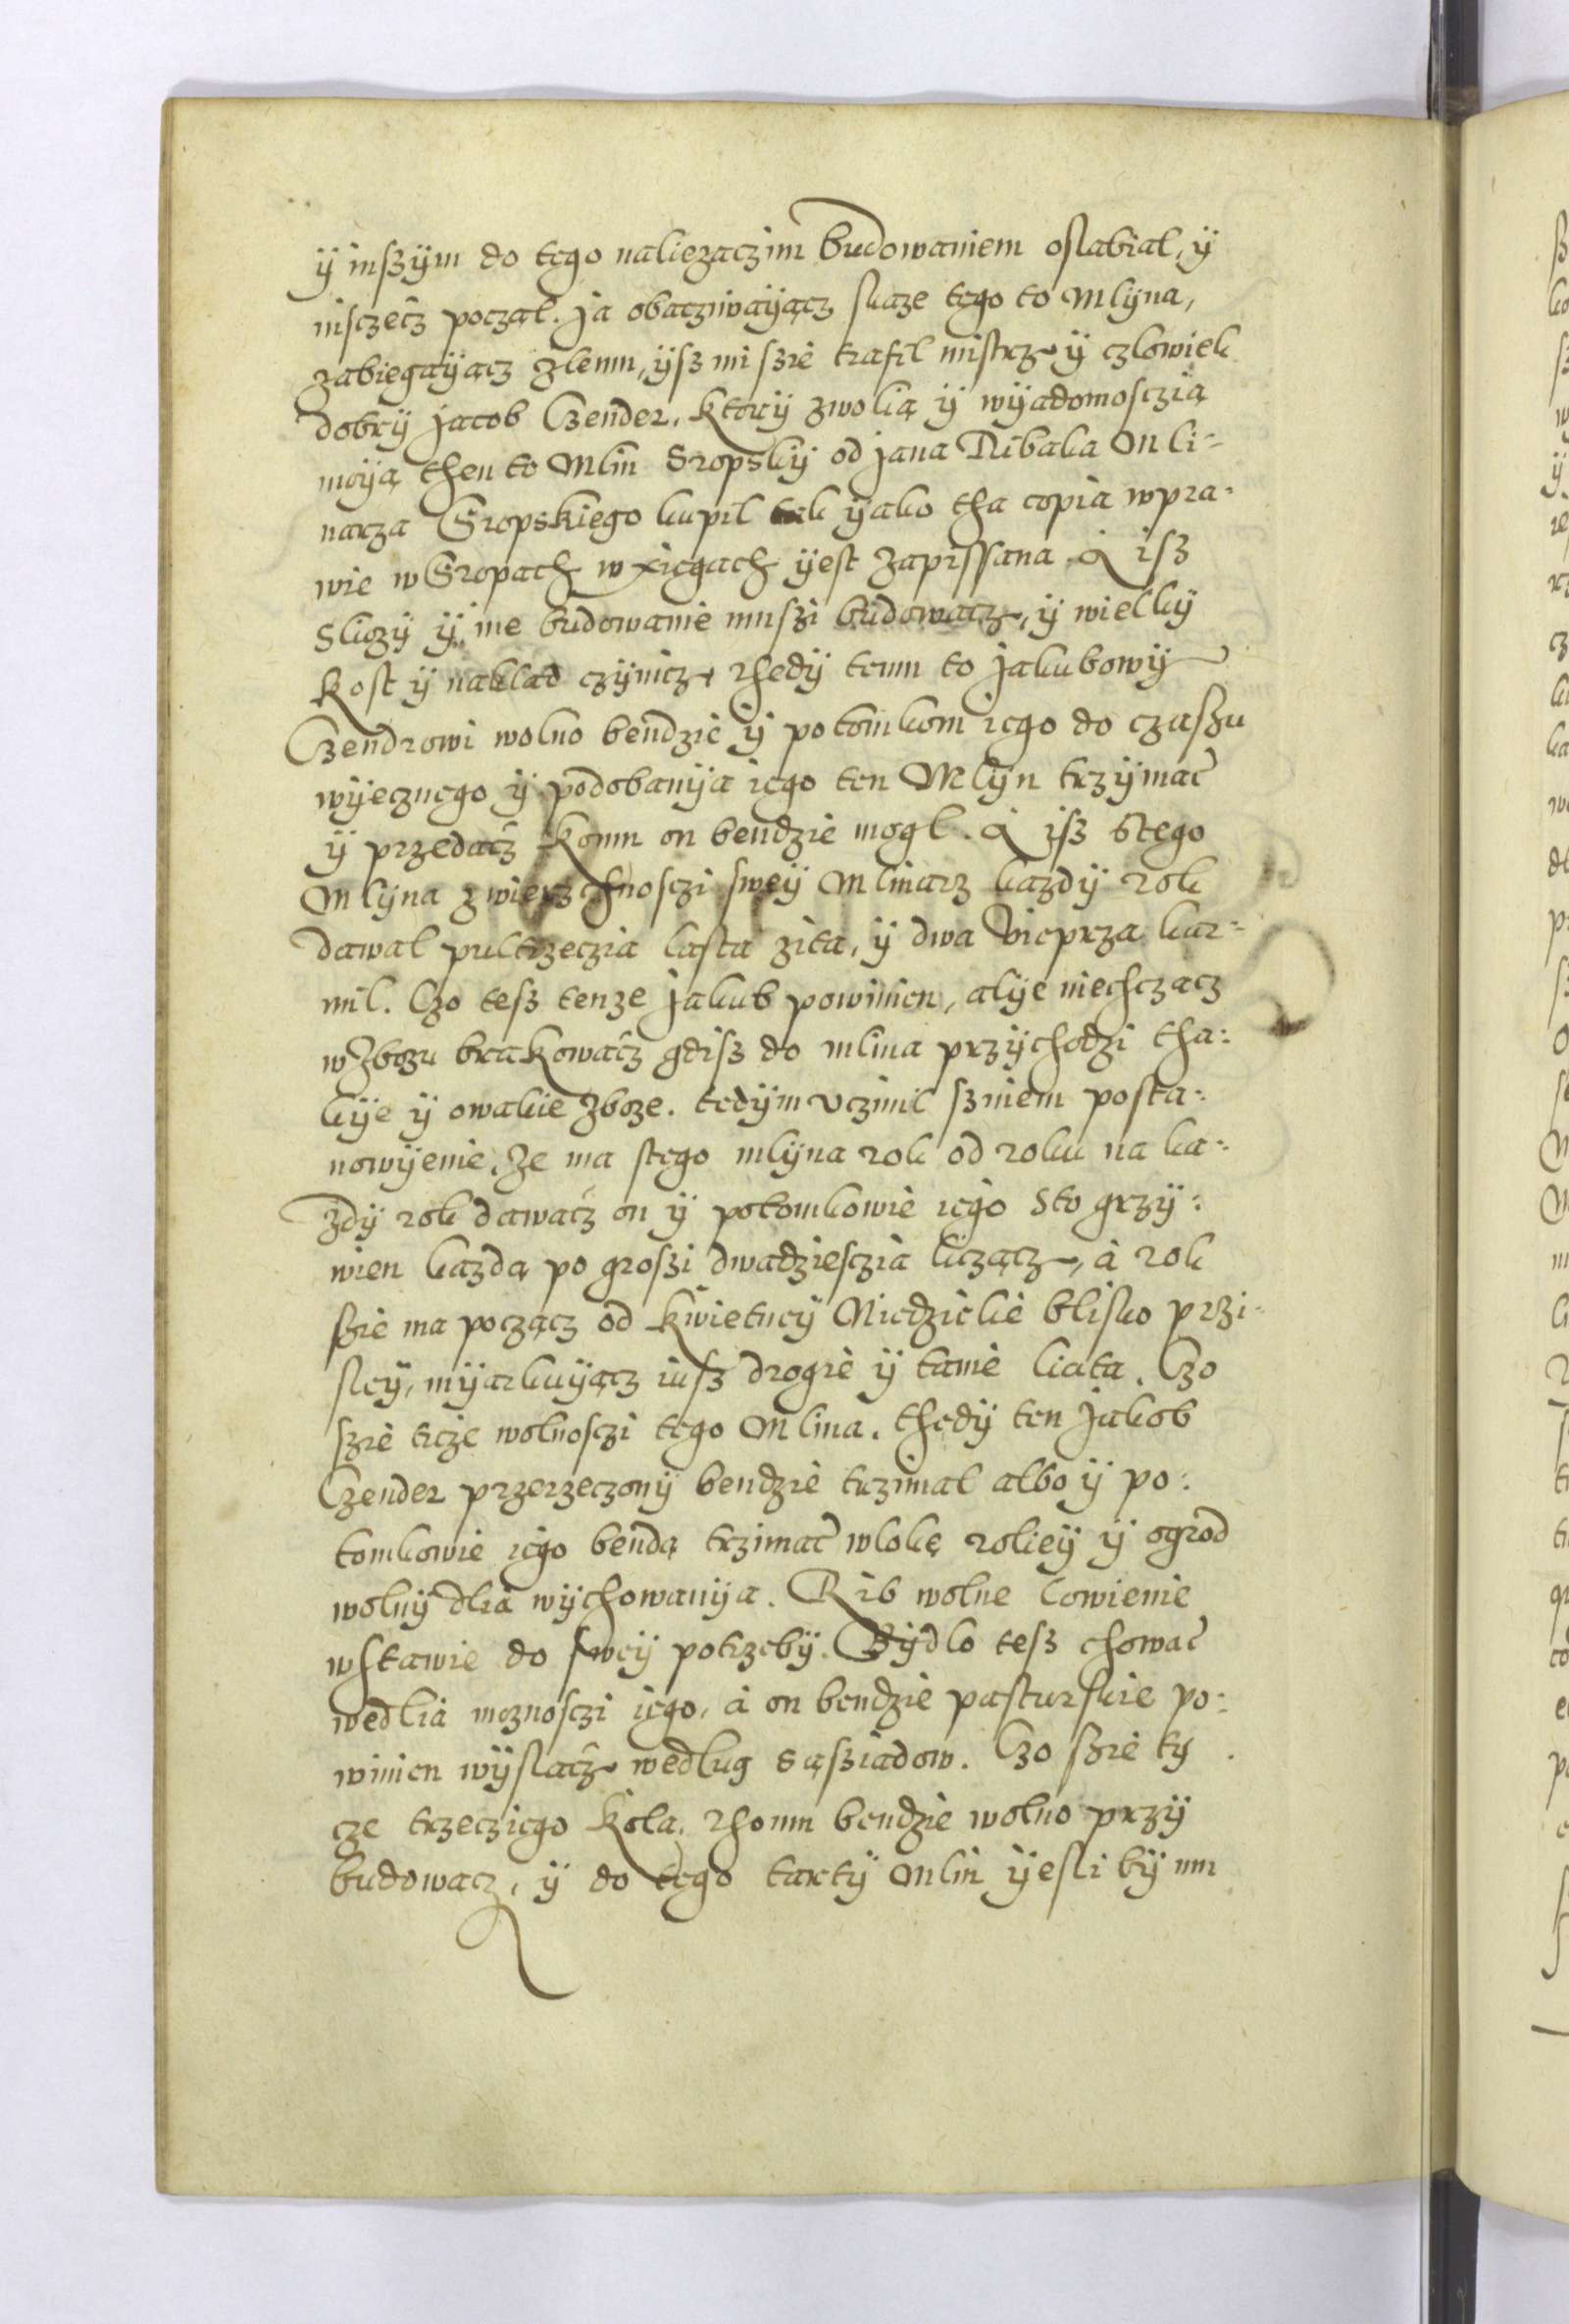 ÿ inszÿm do tego naliezaczim budowaniem oslabial, ÿ
nisczecz poczal. Ja obacziwaÿącz skaze tego to Mlÿna,
zabiegaÿącz zlemu, ÿsz mi szie trafil mistrz ÿ czlowiek
dobrÿ Jacob Czender. Ktorÿ zwolią ÿ wÿadomosczią
moÿą then to Mlin Sropskÿ od Jana Ribaka Mli-
narza Sropskiego kupil tak ÿako tha copia wpra-
wie w Sropach w xięgach ÿest zapissana. A isz
Sluzÿ ÿ ine budowanie muszi budowacz, ÿ wielkÿ
kost ÿ naklad czÿnicz, thedÿ temu to Jakubowÿ
Czendrowi wolno bendzie ÿ potomkom iego do czaszu
wÿecznego ÿ podobanÿa iego ten Mlÿn trzÿmac
ÿ przedacz komu on bendzie mogl. A isz Stego
Mlÿna zwierzchnosczi sweÿ Mlinarz kazdÿ rok
dawal pultrzeczia lasta zita, ÿ dwa Vieprza kar-
mil. Czo tesz tenze Jakub powinien, alÿe niechczącz
w Zbozu brakowacz gdisz do mlina przÿchodzi tha-
kÿe ÿ owakie zboze. tedÿm uczinil szniem posta-
nowÿenie, Ze ma stego mlÿna rok od roku na ka-
zdÿ rok dawacz on ÿ potomkowie iego Sto grzÿ-
wien kazdą po groszi dwadziesczia liczącz, à rok
szie ma począcz od kwietneÿ Niedzielie blisko przi-
sleÿ, mÿarkuÿącz iusz drogie ÿ tanie liata. Czo
szie ticze wolnosczi tego Mlina, thedÿ ten Jakob
Czender przerzeczonÿ bendzie trzimal albo ÿ po-
tomkowie iego bendą trzimac wlokę roliey ÿ ogrod
wolnÿ dlia wÿchowanÿa. Rib wolne lowienie
wstawie do sweÿ potrzebÿ. Bÿdlo tesz chowac
wedlia moznosczi iego, à on bendzie pasturskie po-
winien wÿslacz wedlug Sąsziadow. Czo szie tÿ
cze trzecziego kola, thomu bendzie wolno przÿ
budowacz, ÿ do tego tartÿ Mlin ÿesli bÿ mu